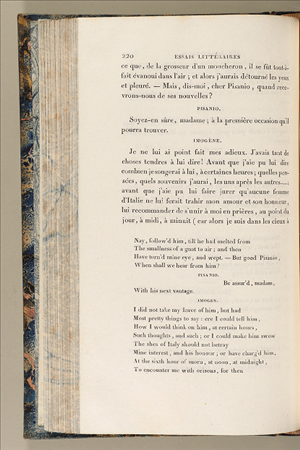 220 ESSAIS LITTÉRAIRES
ce que, de la grosseur d'un moucheron, il se fût tout-à-
fait évanoui dans l'air ; et alors j'aurais détourné les yeux
et pleuré. — Mais, dis-moi, cher Pisanio, quand rece-
vrons-nous de ses nouvelles ?
PISANIO.
Soyez-en sûre, madame ; à la première occasion qu'il
pourra trouver.
IMOGÈNE.
Je ne lui ai point fait mes adieux. J'avais tant de
choses tendres à lui dire ! Avant que j'aie pu lui dire
combien je songerai à lui, à certaines heures ; quelles pen-
sées, quels souvenirs j'aurai, les uns après les autres....;
avant que j'aie pu lui faire jurer qu'aucune femme
d'Italie ne lui ferait trahir mon amour et son honneur,
lui recommander de s'unir à moi en prières, au point du
jour, à midi, à minuit ( car alors je suis dans les cieux à
Nay, follow'd him, till he had melted from
The smallness of a gnat to air ; and then
Have turn'd mine eye, and wept. — But good Pisanio,
When shall we hear from him?
PISANIO.
Be assur'd, madam,
With his next vantage.
IMOGEN.
I did not take my leave of him, but had
Most pretty things to say : ere I could tell him,
How I would think on him, at certain hours,
Such thoughts, and such ; or I could make him swear
The shes of Italy should not betray
Mine interest, and his honour ; or have charg'd him,
At the sixth hour of morn, at noon, at midnight,
To encounter me with orisons, for then